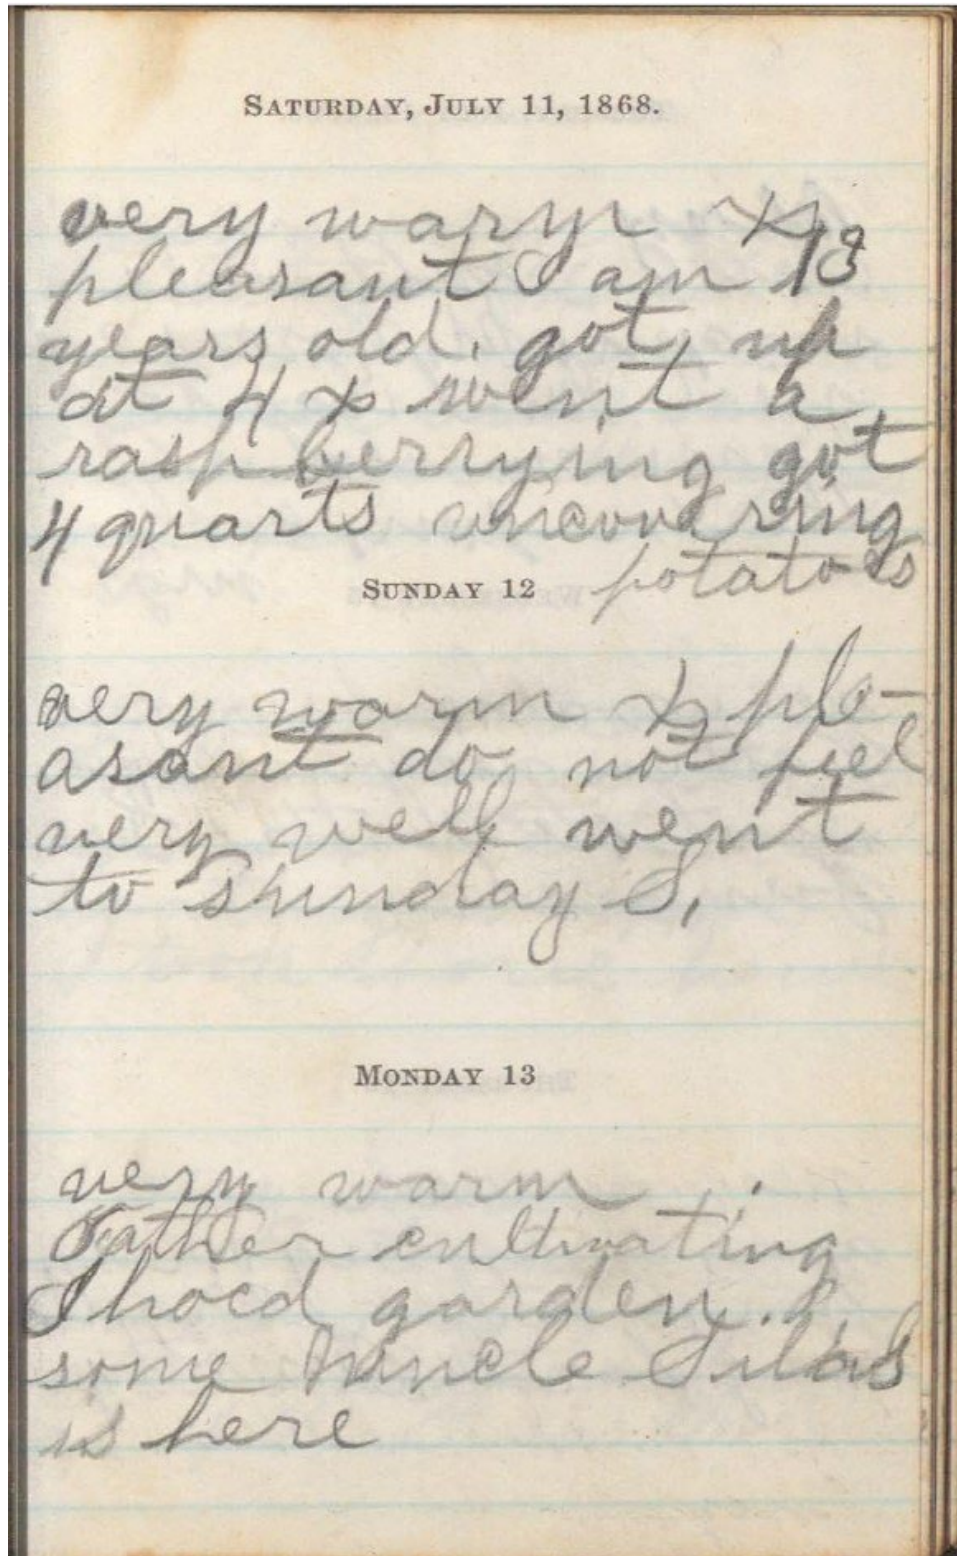 SATURDAY, JULY 11, 1868.
very warm &
pleasant I am 13
years old. got up
at 4 & went a
rasp berrying got
4 quarts uncovering
potatoes
SUNDAY 12
very warm & ple-
asant do not feel
very well went
to Sunday S,
MONDAY 13
very warm.
Father cultivating
I hoed garden.
some Uncle Silas
is here